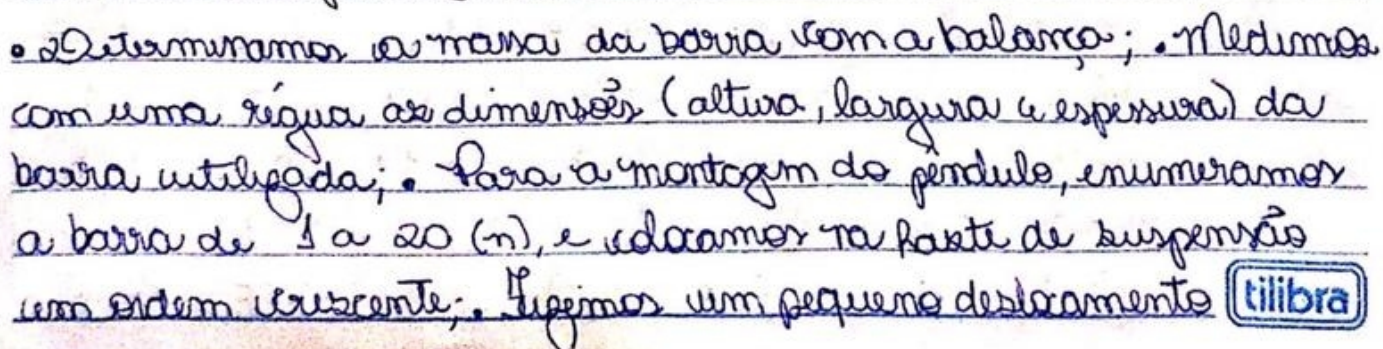 • Determinamos a massa da barra com a balança; • Medimos
com uma régua as dimensões (altura, largura e espessura) da
barra utilizada; • Para a montagem do pêndulo, enumeramos
a barra de 1 a 20 (n), e colocamos na haste de suspensão
em ordem crescente; • Fizemos um pequeno deslocamento tilibra